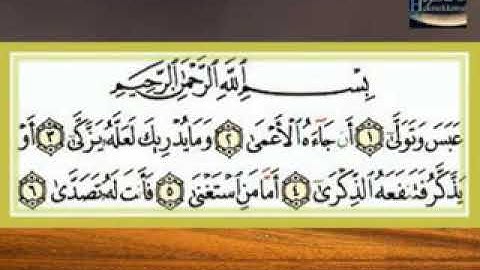 بِسْمِ اللَّهِ الرَّحْمَٰنِ الرَّحِيمِ
عَبَسَ وَتَوَلَّىٰ ١ أَن جَاءَهُ الْأَعْمَىٰ ٢ وَمَا يُدْرِيكَ لَعَلَّهُ يَزَّكَّىٰ ٣ أَوْ
يَذَّكَّرُ فَتَنفَعَهُ الذِّكْرَىٰ ٤ أَمَّا مَنِ اسْتَغْنَىٰ ٥ فَأَنتَ لَهُ تَصَدَّىٰ ٦